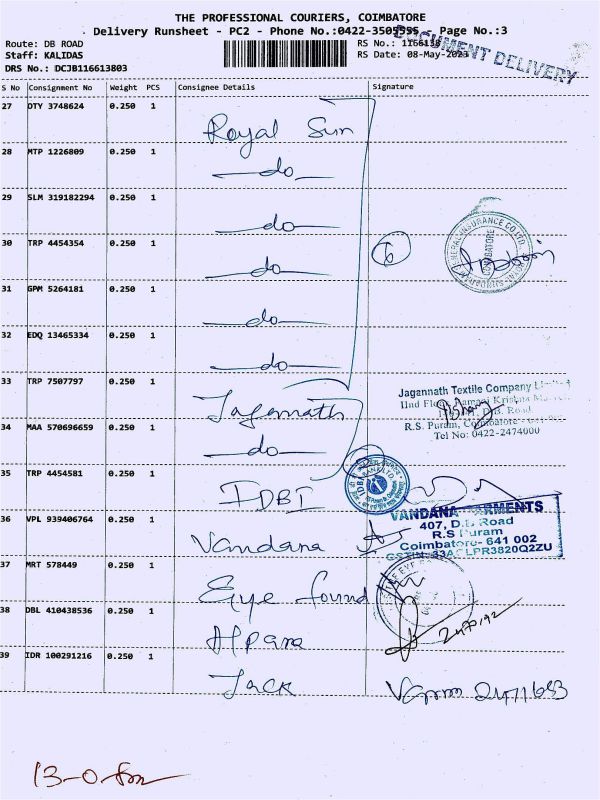 THE PROFESSIONAL COURIERS, COIMBATORE
Delivery Runsheet - PC2 - Phone No.:0422-3505555 Page No.:3
DOCUMENT DELIVERY
Route: DB ROAD
Staff: KALIDAS
DRS No.: DCJB116613803
RS No.:
RS Date: 08-May-2023
S No Consignment No Weight PCS Consignee Details Signature
27 DTY 3748624 0.250 1 Royal Sun
28 MTP 1226809 0.250 1 do
29 SLM 319182294 0.250 1 do
30 TRP 4454354 0.250 1 do
6
GENERAL INSURANCE CO LTD
COIMBATORE
31 GPM 5264181 0.250 1 do
32 EDQ 13465334 0.250 1 do
33 TRP 7507797 0.250 1 Jagannath
Jagannath Textile Company Limited
R.S. Puram, Coimbatore
Tel No: 0422-2474000
34 MAA 570696659 0.250 1 do
35 TRP 4454581 0.250 1 IDBI
IDBI BANK LTD
36 VPL 939406764 0.250 1 Vandana
VANDANA GARMENTS
407, D.B. Road
R.S Puram
Coimbatore- 641 002
GSTIN: 33ACLPR3820Q2ZU
37 MRT 578449 0.250 1 Eye found
38 DBL 410438536 0.250 1 Alpana
39 IDR 100291216 0.250 1 Jack